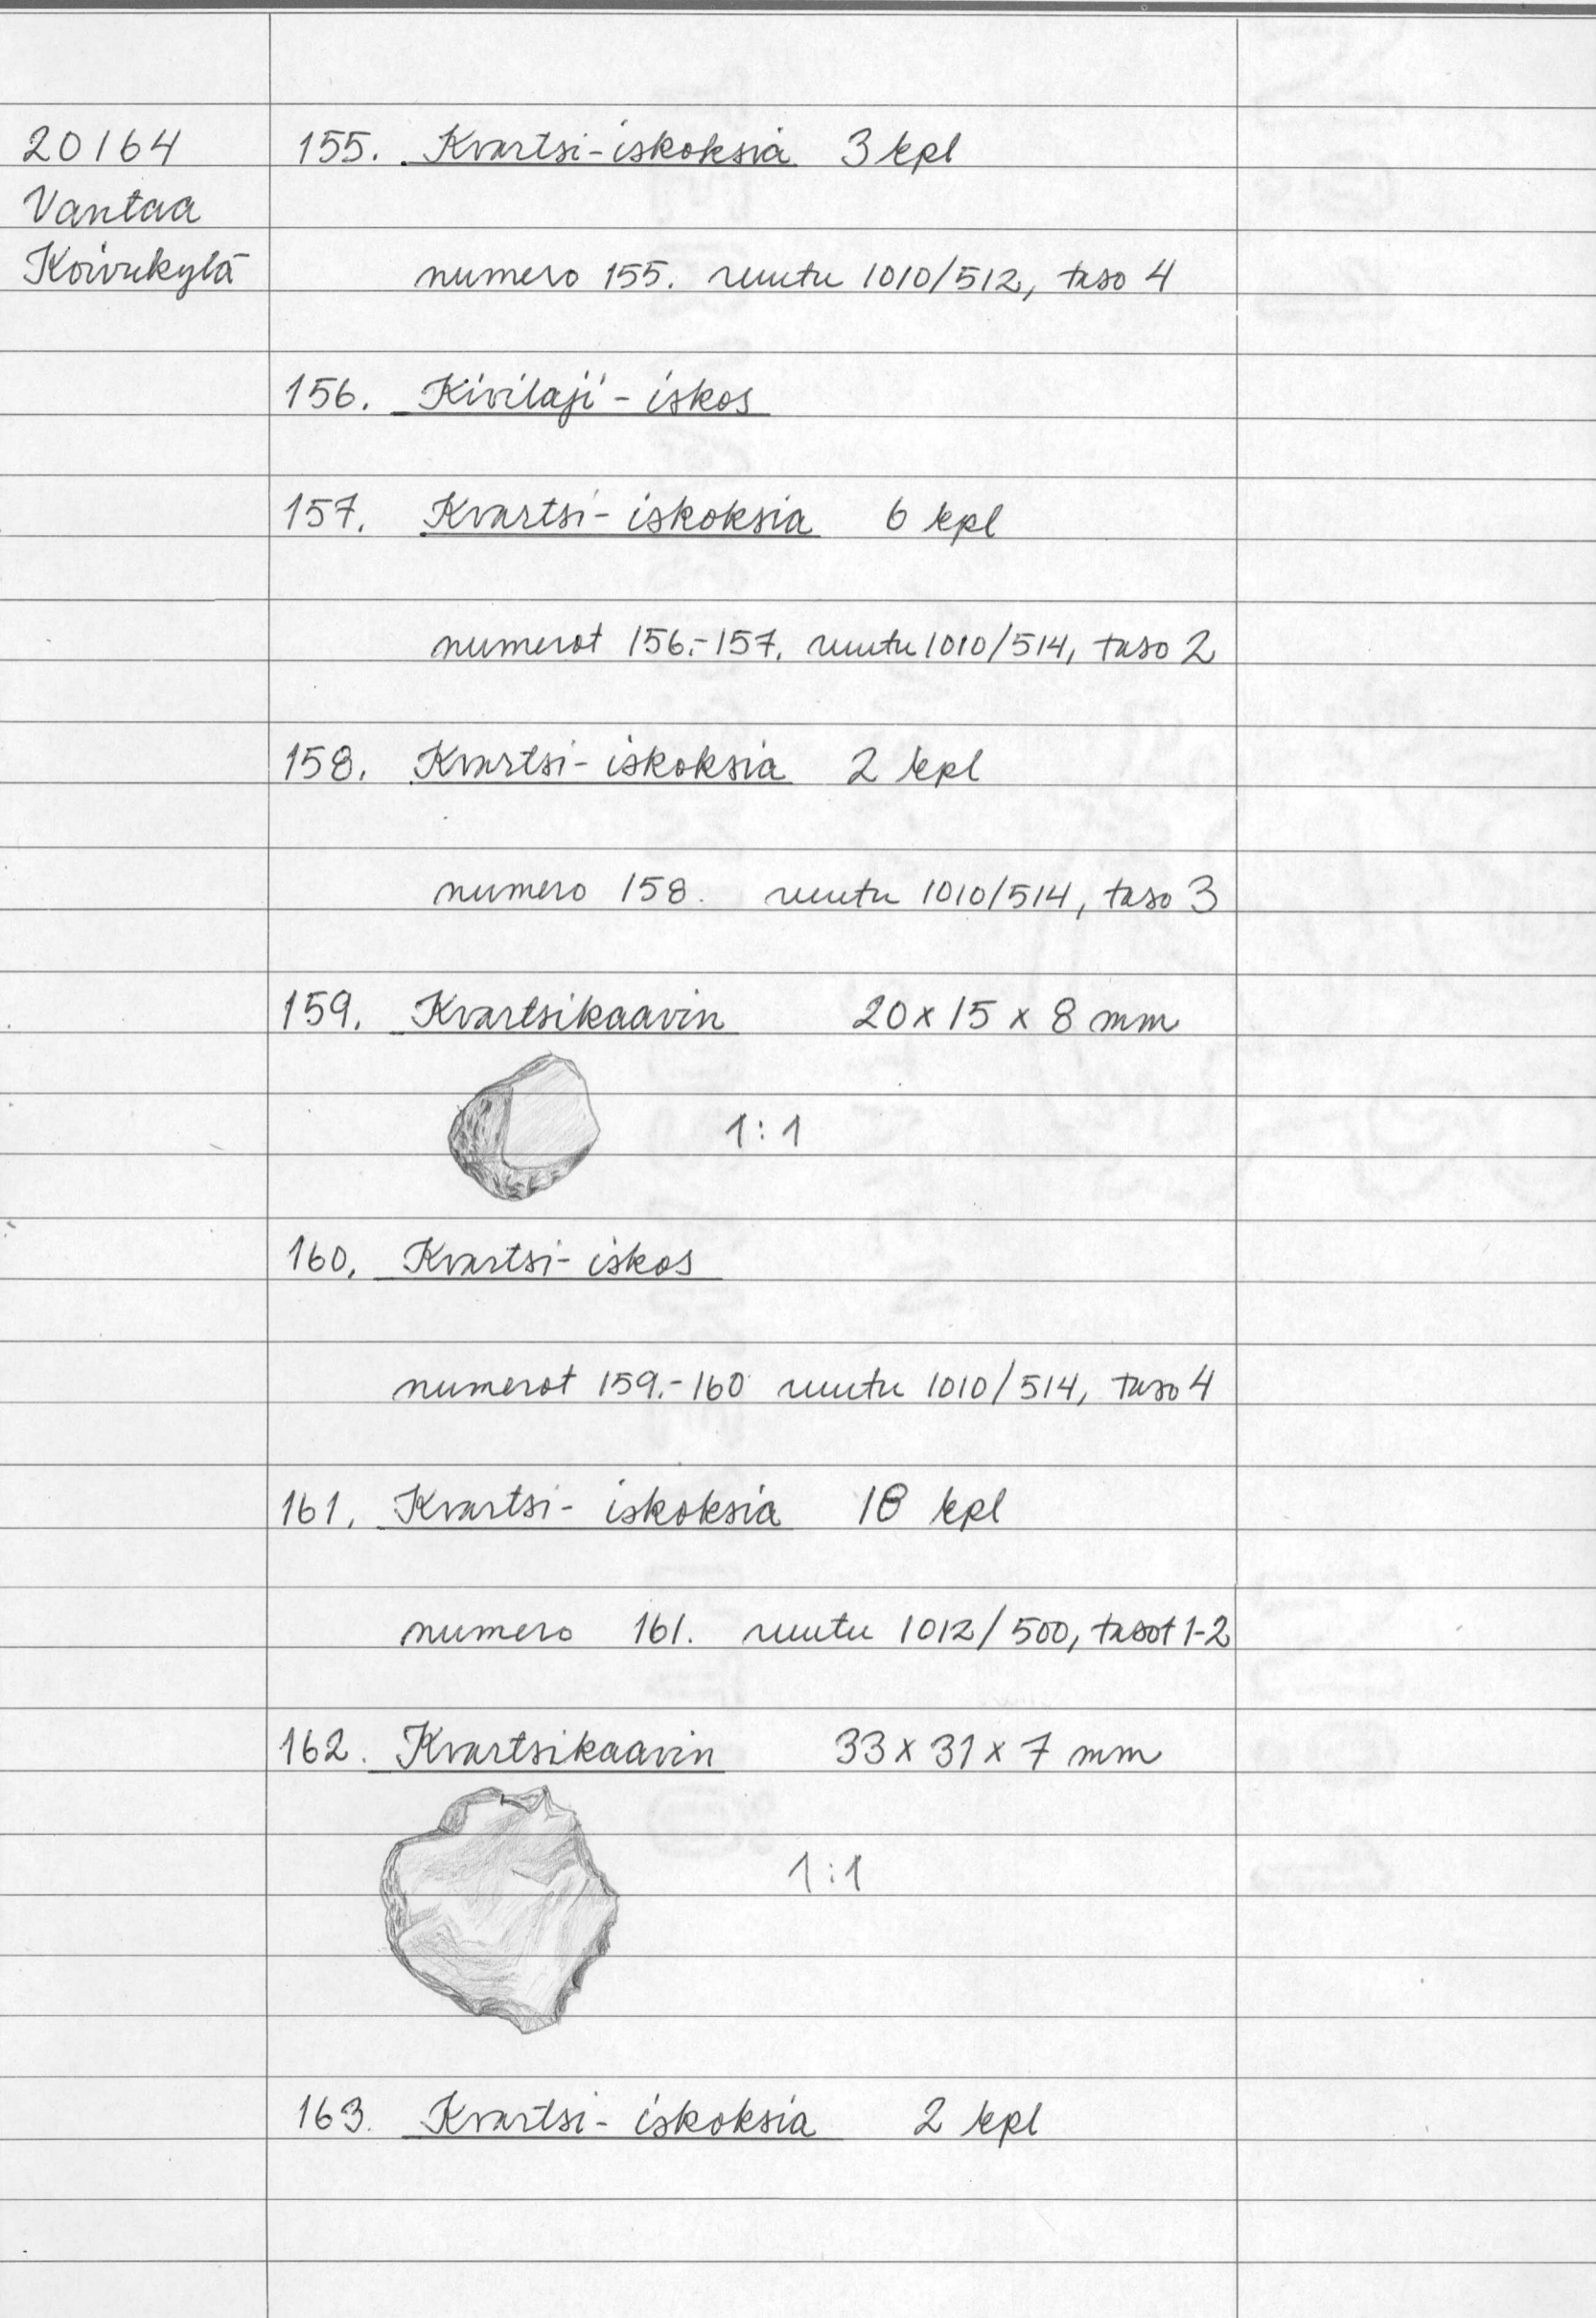 20164
Vantaa
Koivukylä
155. Kvartsi-iskoksia 3 kpl
numero 155. ruutu 1010/512, taso 4
156. Kivilaji-iskos
157. Kvartsi-iskoksia 6 kpl
numerot 156.-157. ruutu 1010/514, taso 2
158. Kvartsi-iskoksia 2 kpl
numero 158. ruutu 1010/514, taso 3
159. Kvartsikaavin 20 x 15 x 8 mm
1:1
160. Kvartsi-iskos
numerot 159.-160 ruutu 1010/514, taso 4
161. Kvartsi-iskoksia 18 kpl
numero 161. ruutu 1012/500, tasot 1-2
162. Kvartsikaavin 33 x 31 x 7 mm
1:1
163. Kvartsi-iskoksia 2 kpl